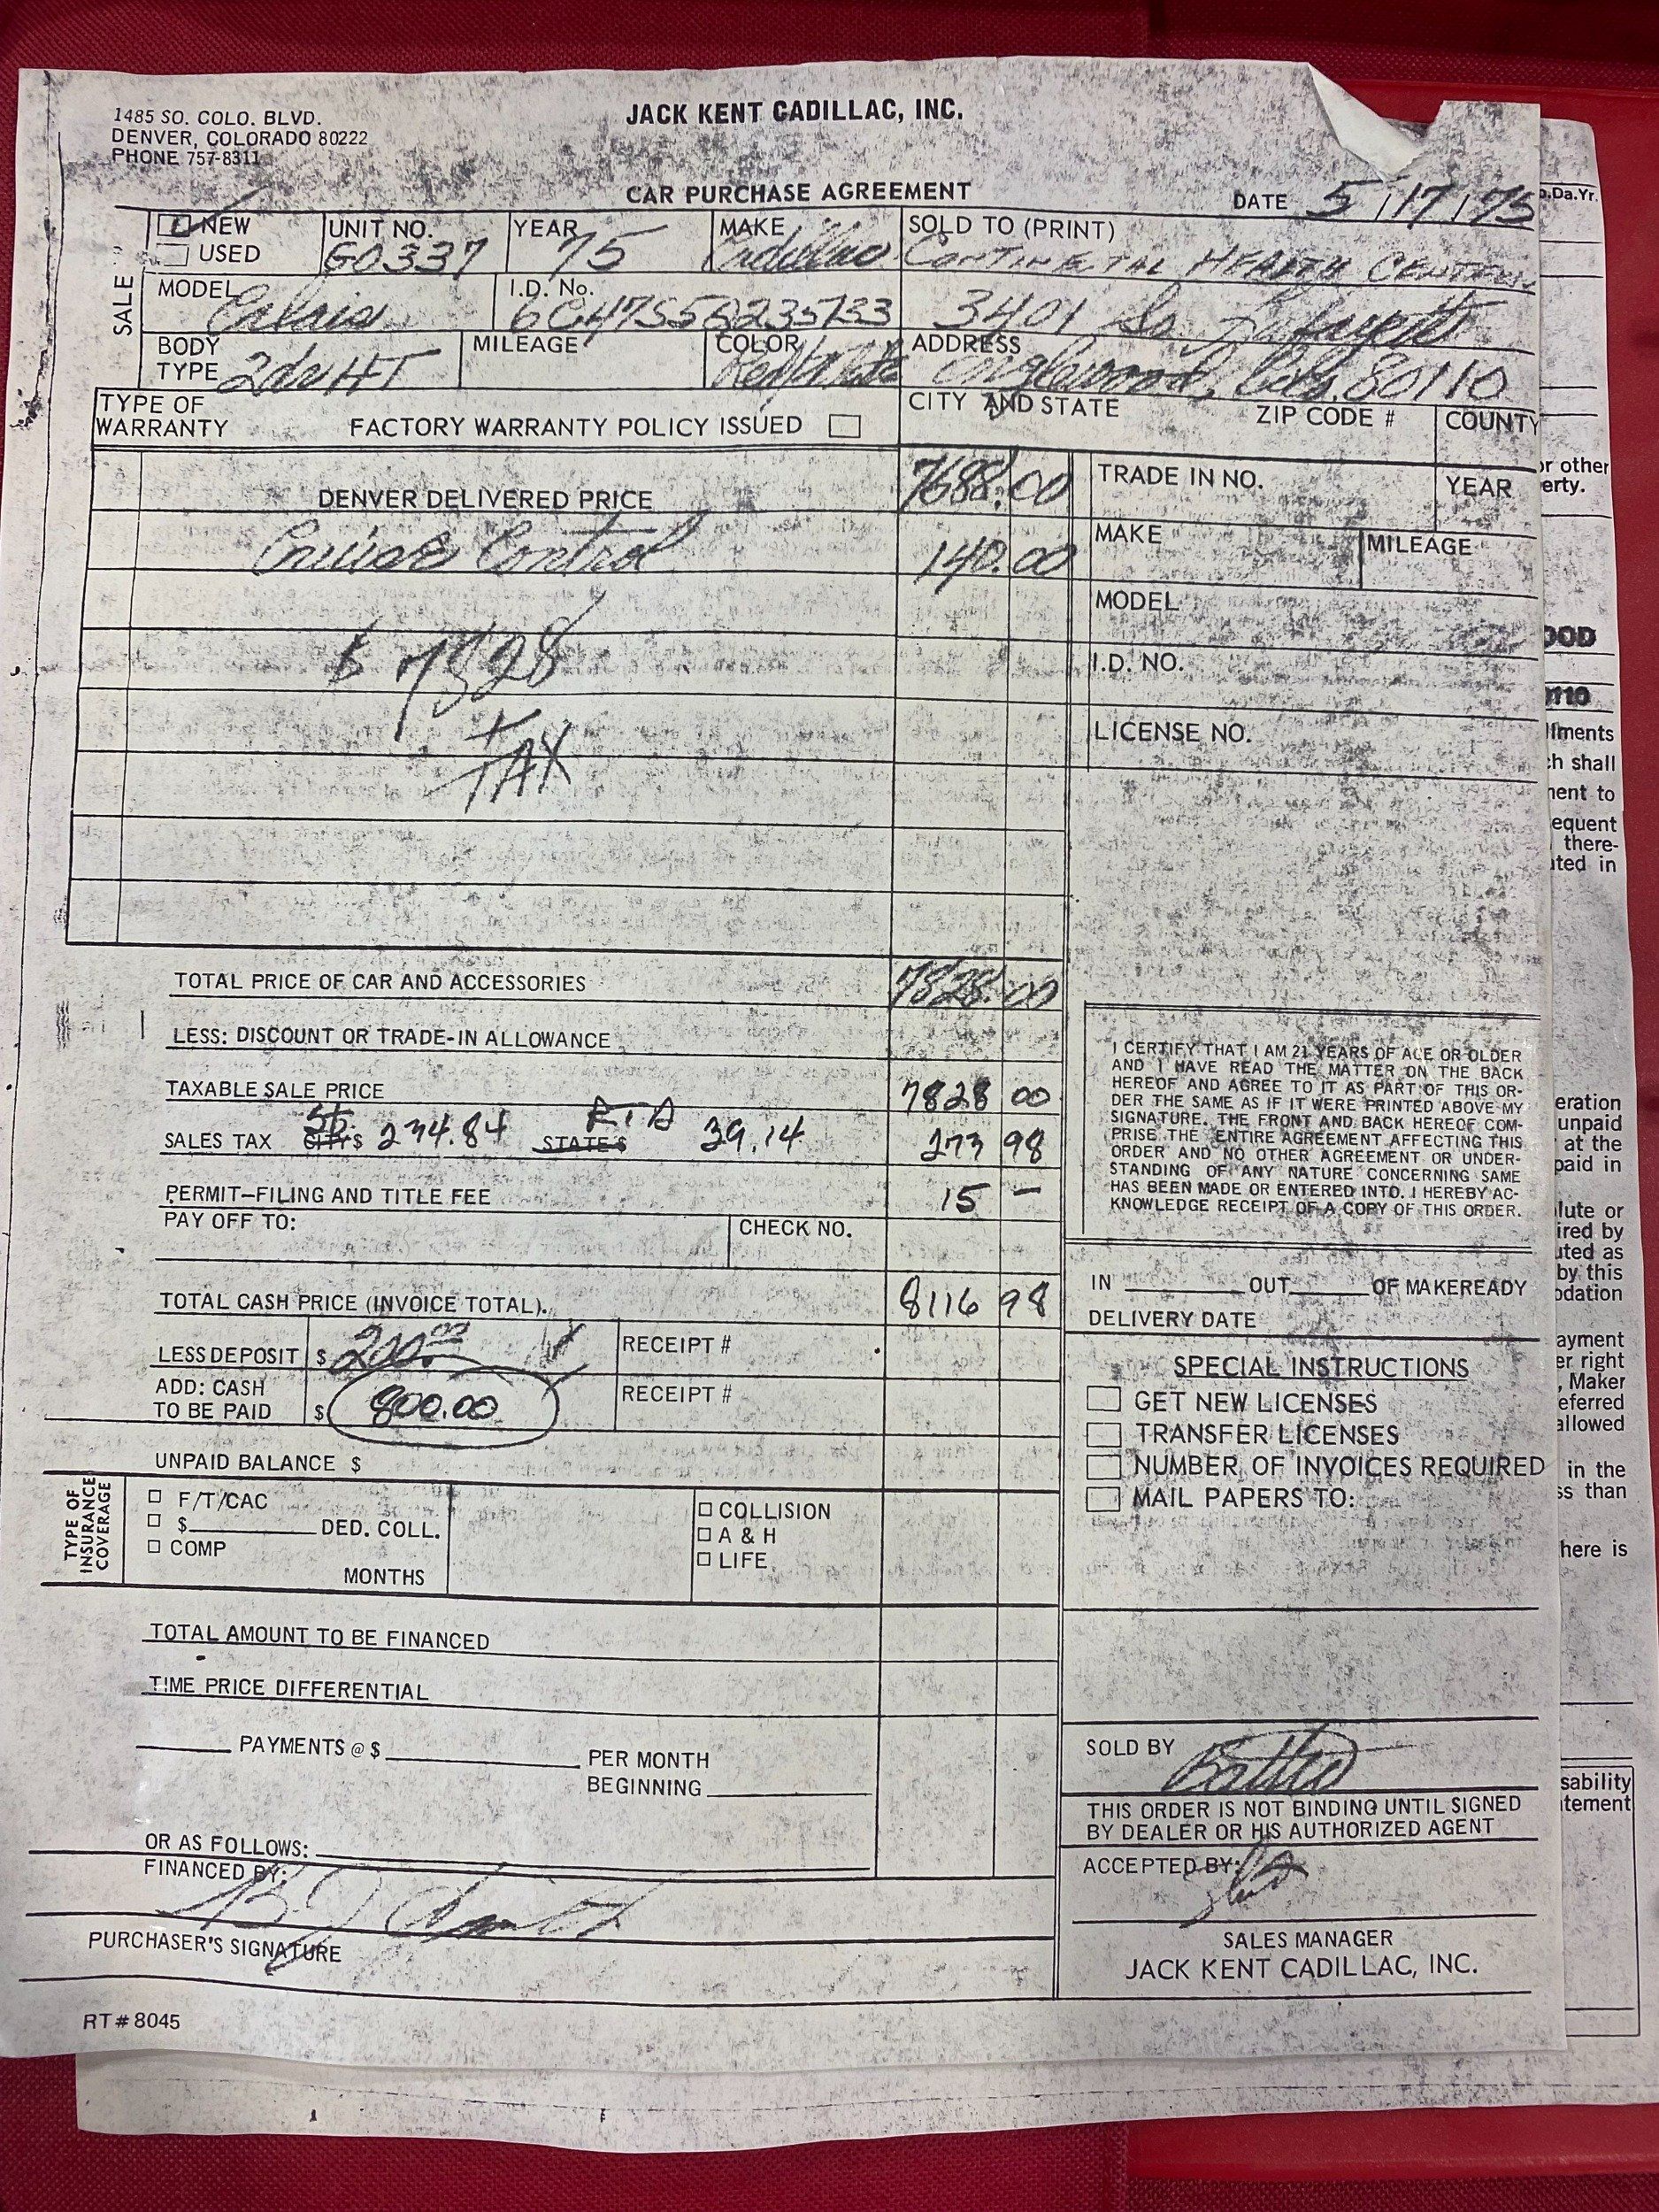 1485 SO. COLO. BLVD.
DENVER, COLORADO 80222
PHONE 757-8311
JACK KENT CADILLAC, INC.
CAR PURCHASE AGREEMENT
DATE 5/17/75
SALE
NEW
USED
UNIT NO.
G0337
YEAR
75
MAKE
Cadillac
SOLD TO (PRINT)
CONTINETAL HEALTH CENTER
MODEL
I.D. No.
3401 So. Lafayette
BODY
TYPE 2dr HT
MILEAGE
COLOR
Red/White
ADDRESS
Englewood, Colo. 80110
CITY AND STATE
ZIP CODE #
COUNTY
TYPE OF
WARRANTY
FACTORY WARRANTY POLICY ISSUED
DENVER DELIVERED PRICE 7688.00
Cruise Control 140.00
$ 7828
+
TAX
TRADE IN NO.
YEAR
MAKE
MILEAGE
MODEL
I.D. NO.
LICENSE NO.
TOTAL PRICE OF CAR AND ACCESSORIES 7828.00
LESS: DISCOUNT OR TRADE-IN ALLOWANCE
TAXABLE SALE PRICE 7828 00
SALES TAX St. CITY $ 234.84 RTD STATE $ 39.14 273 98
PERMIT—FILING AND TITLE FEE 15 –
PAY OFF TO:
CHECK NO.
TOTAL CASH PRICE (INVOICE TOTAL). 8116 98
LESS DEPOSIT $ 200.00
RECEIPT #
ADD: CASH
TO BE PAID $ 800.00
RECEIPT #
UNPAID BALANCE $
TYPE OF
INSURANCE
COVERAGE
F/T/CAC
$ DED. COLL.
COMP
MONTHS
COLLISION
A & H
LIFE
TOTAL AMOUNT TO BE FINANCED
TIME PRICE DIFFERENTIAL
PAYMENTS @ $ PER MONTH
BEGINNING
OR AS FOLLOWS:
FINANCED BY:
PURCHASER'S SIGNATURE
RT # 8045
I CERTIFY THAT I AM 21 YEARS OF AGE OR OLDER
AND I HAVE READ THE MATTER ON THE BACK
HEREOF AND AGREE TO IT AS PART OF THIS OR-
DER THE SAME AS IF IT WERE PRINTED ABOVE MY
SIGNATURE. THE FRONT AND BACK HEREOF COM-
PRISE THE ENTIRE AGREEMENT AFFECTING THIS
ORDER AND NO OTHER AGREEMENT OR UNDER-
STANDING OF ANY NATURE CONCERNING SAME
HAS BEEN MADE OR ENTERED INTO. I HEREBY AC-
KNOWLEDGE RECEIPT OF A COPY OF THIS ORDER.
IN OUT OF MAKEREADY
DELIVERY DATE
SPECIAL INSTRUCTIONS
GET NEW LICENSES
TRANSFER LICENSES
NUMBER OF INVOICES REQUIRED
MAIL PAPERS TO:
SOLD BY
THIS ORDER IS NOT BINDING UNTIL SIGNED
BY DEALER OR HIS AUTHORIZED AGENT
ACCEPTED BY:
SALES MANAGER
JACK KENT CADILLAC, INC.
o.Da.Yr.
or other
erty.
OOD
0110
llments
ch shall
ment to
equent
there-
ated in
eration
unpaid
at the
paid in
lute or
ired by
uted as
by this
odation
ayment
er right
, Maker
eferred
allowed
in the
ss than
here is
sability
tement